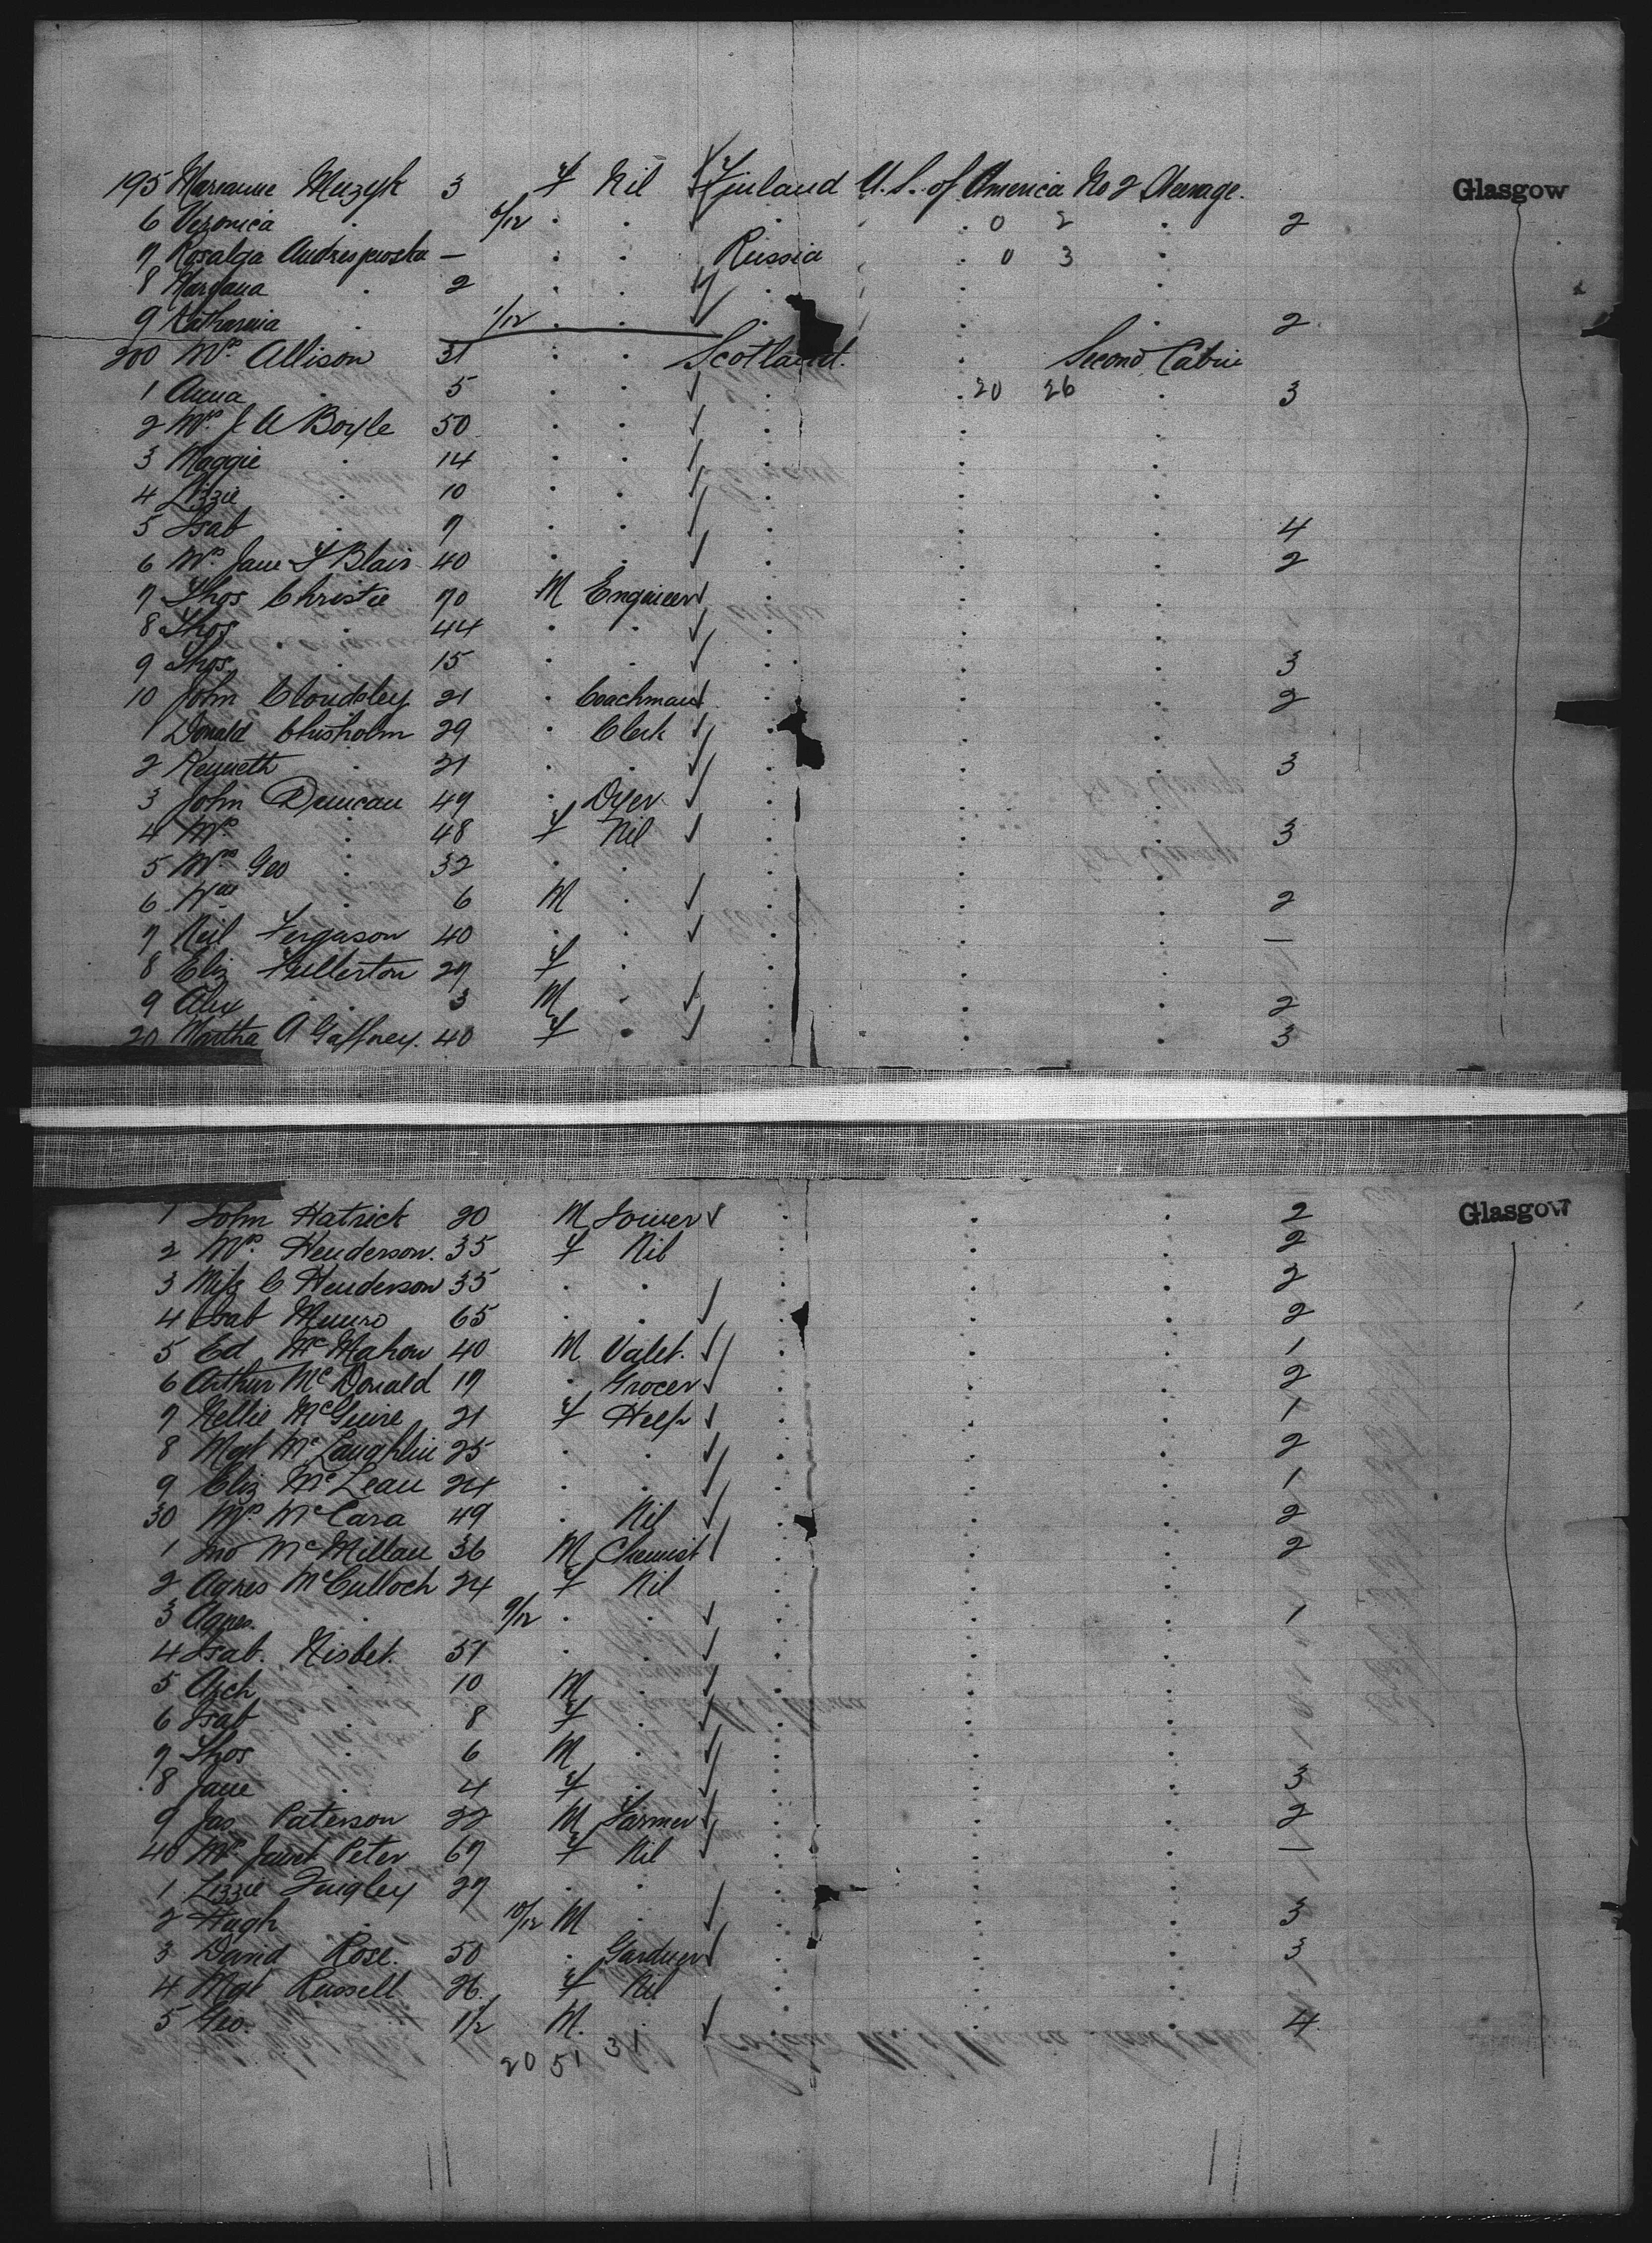 195 Marianne Muzyk 3 F Nil Finland U.S. of America No 2 Steerage. Glasgow
6 Veronica . /12 . . . 0 2 . 2
7 Rosalga — . . Russia . 0 3 .
8 Marjana . 2 . . . . .
9 Katharina . 1/12 . . . . . 2
200 Mrs Allison 31 . . Scotland . Second Cabin
1 Anna . 5 . . . . 20 26 . 3
2 Mrs J A Boyle 50 . . . . .
3 Maggie . 14 . . . . .
4 Lizzie . 10 . . . . .
5 Isab . 7 . . . . . 4
6 Mrs Jane F Blair 40 . . . . . 2
7 Thos Christie 70 M Engineer . . .
8 Thos . 44 . . . . .
9 Thos . 15 . . . . . 3
10 John Cloudsley 21 . Coachman . . . 2
1 Donald Chisholm 29 . Clerk . . .
2 Kenneth . 21 . . . . . 3
3 John Duncan 49 . Dyer . . .
4 Mrs . 48 F Nil . . . 3
5 Mrs Geo . 32 . . . . .
6 Wm . 6 M . . . . 2
7 Neil Ferguson 40 . . . . . —
8 Eliz Fullerton 27 F . . . .
9 Alex . 3 M . . . . 2
20 Martha A Gaffney. 40 F . . . . 3
1 John Hatrick 20 M Joiner . . . 2 Glasgow
2 Mrs Henderson. 35 F Nil . . . 2
3 Miss C Henderson 35 . . . . . 2
4 Isab Munro 65 . . . . . 2
5 Ed McMahon 40 M Valet. . . . 1
6 Arthur McDonald 19 . Grocer . . . 2
7 Nellie McGuire 21 F Help . . . 1
8 Mgt McLaughlin 25 . . . . . 2
9 Eliz McLean 24 . . . . . 1
30 Mrs McCara 49 . Nil . . . 2
1 Jno McMillan 36 M Chemist . . . 2
2 Agnes McCulloch 24 F Nil . . .
3 Agnes . 9/12 . . . . . 1
4 Isab. Nisbet. 51 . . . . .
5 Arch . 10 M . . . .
6 Isab . 8 F . . . .
7 Thos . 6 M . . . .
8 Jane . 4 F . . . . 3
9 Jas Paterson 22 M Farmer . . . 2
40 Mrs Janet Peter 67 F Nil . . . —
1 Lizzie Quigley 27 . . . . .
2 Hugh . 10/12 M . . . . 3
3 David Rose. 50 . Gardner . . . 3
4 Mgt Russell 26. F Nil . . .
5 Geo. . 1 1/2 M. . . . . 4
20 51 31